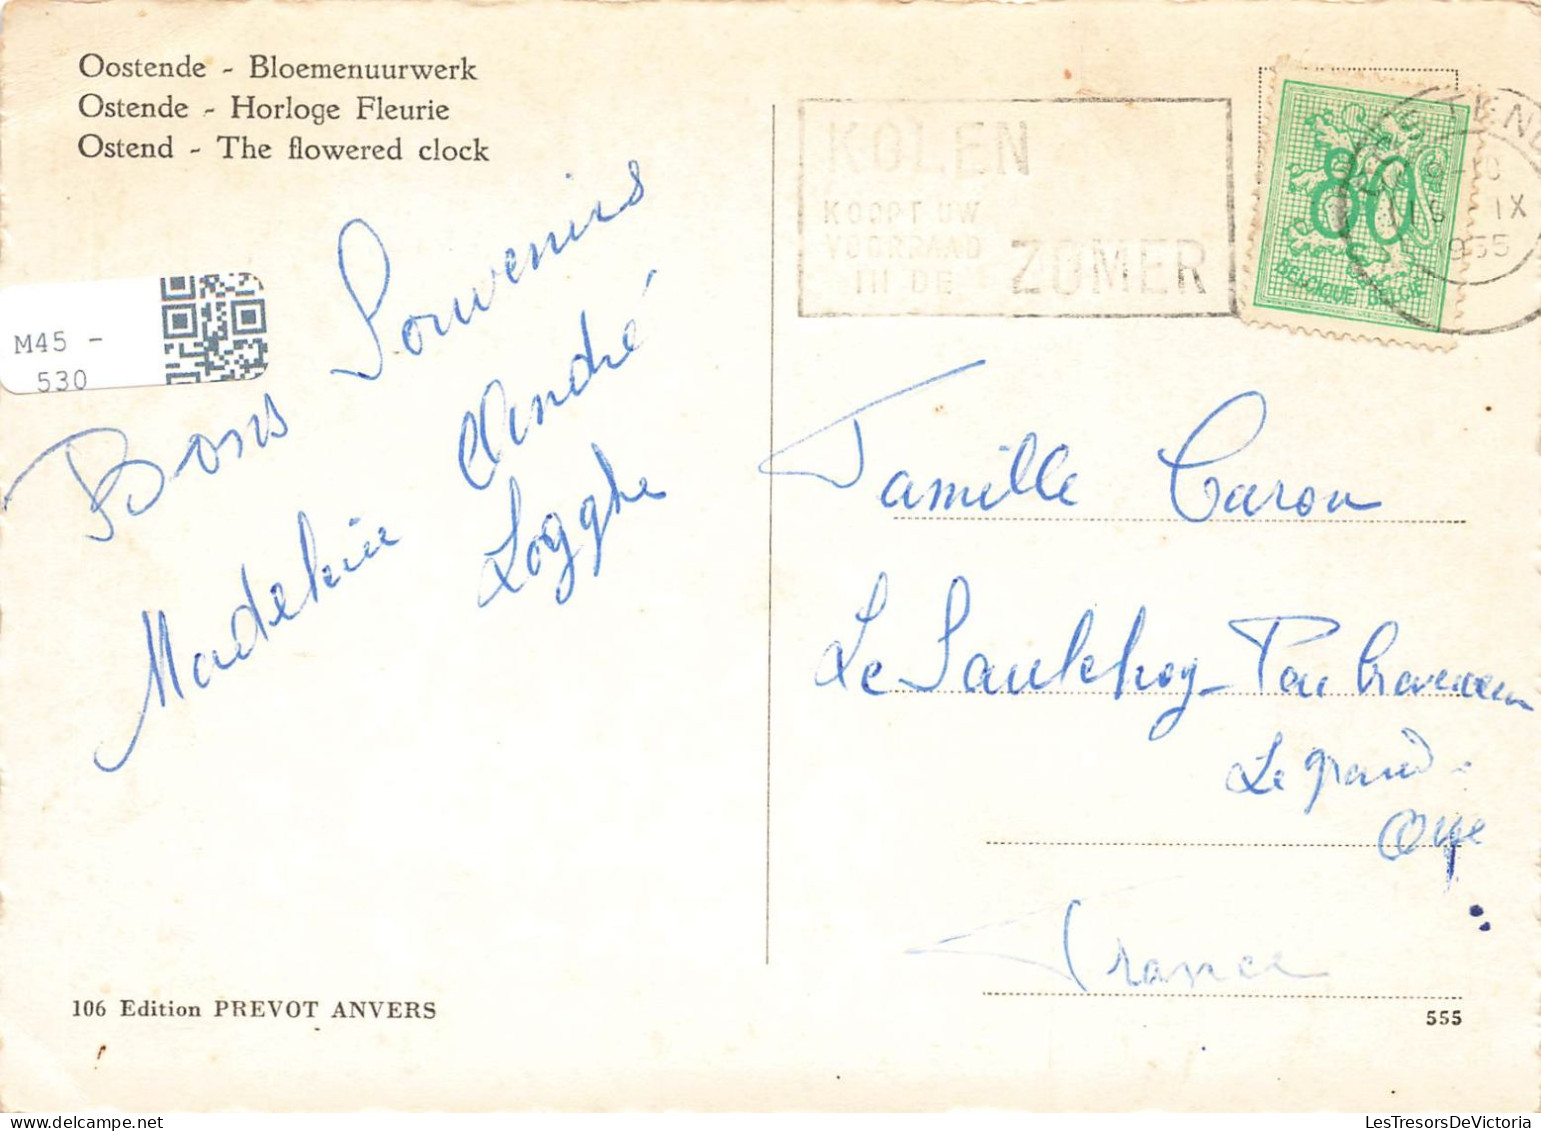 Oostende - Bloemenuurwerk
Ostende - Horloge Fleurie
Ostend - The flowered clock
KOLEN
KOOPT UW
VOORRAAD
IN DE ZOMER
9-10
IX
1955
80
BELGIQUE BELGIE
M45 -
530
Bons Souvenirs
André
Logghe
Famille Caron
Le
Le grand
Oye
France
106 Edition PREVOT ANVERS
555
LesTresorsDeVictoria.com